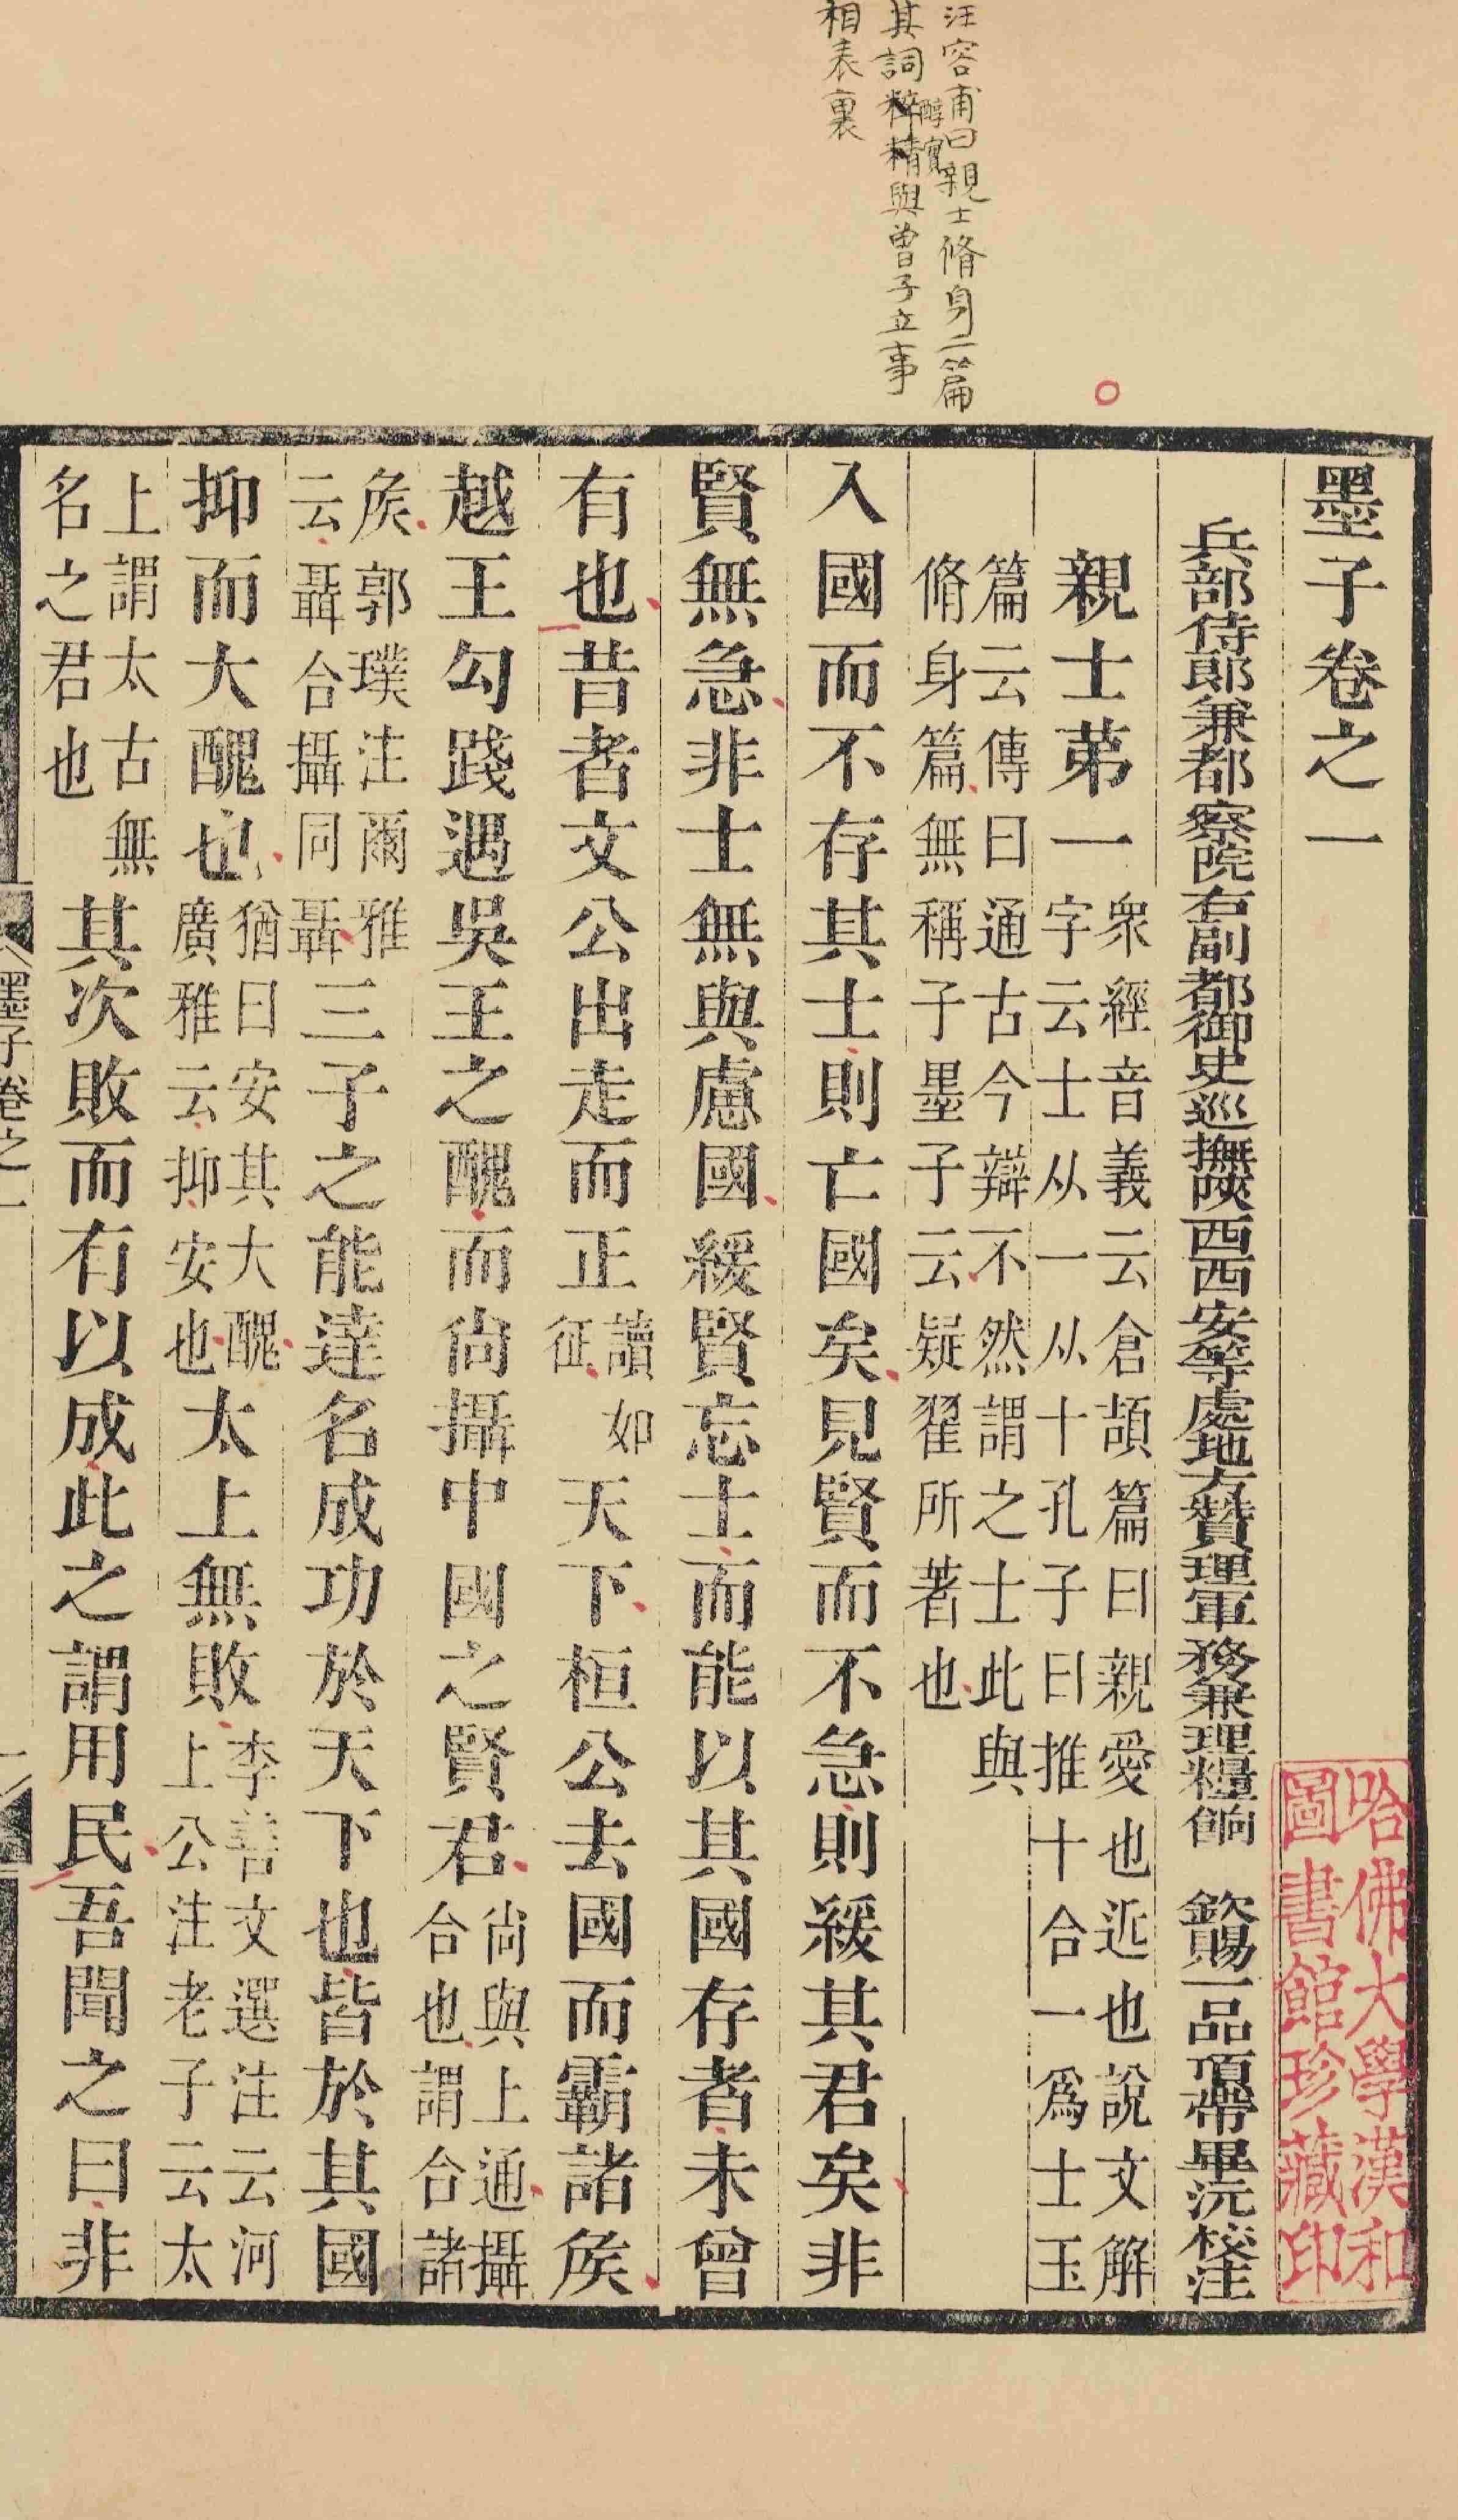 汪容甫曰親士脩身二篇
其詞醇實與曾子立事
相表裏
墨子卷之一
兵部侍郎兼都察院右副都御史巡撫陝西西安等處地方贊理軍務兼理糧餉 欽賜一品頂帶畢沅校注
親士苐一
衆經音義云倉頡篇曰親愛也近也說文解
字云士从一从十孔子曰推十合一爲士玉
篇云傳曰通古今辯不然謂之士此與
脩身篇無稱子墨子云疑翟所著也
入國而不存其士則亡國矣見賢而不急則緩其君矣非
賢無急非士無與慮國緩賢忘士而能以其國存者未曾
有也昔者文公出走而正
讀如
征
天下桓公去國而霸諸矦
越王勾踐遇吳王之醜而尙攝中國之賢君
尙與上通攝
合也謂合諸
矦郭璞注爾雅
云聶合攝同聶
三子之能達名成功於天下也皆於其國
抑而大醜也
猶曰安其大醜
廣雅云抑安也
太上無敗
李善文選注云河
上公注老子云太
上謂太古無
名之君也
其次敗而有以成此之謂用民吾聞之曰非
墨子卷之一
一
哈佛大學漢和
圖書館珍藏印